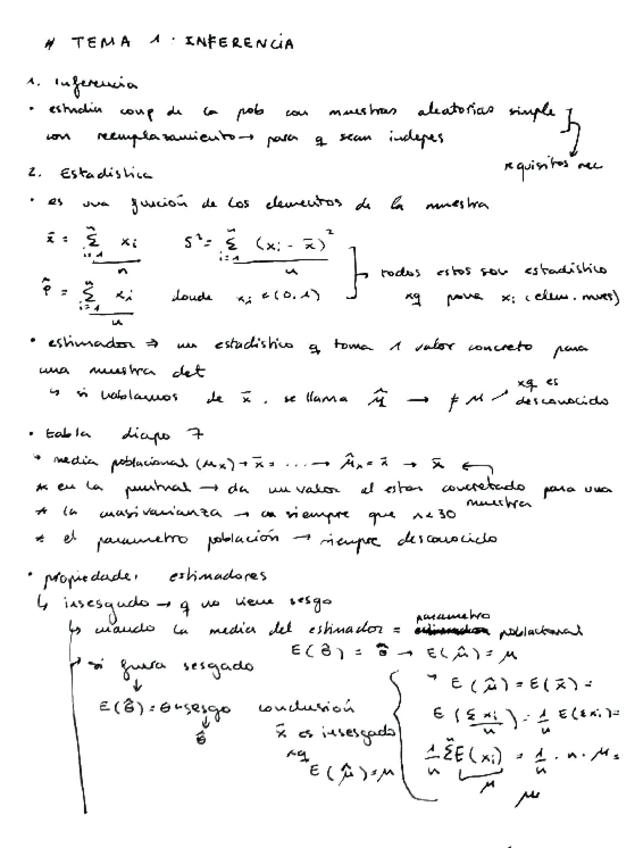 # TEMA 1: INFERENCIA
1. Inferencia
• estudia comp de la pob con muestras aleatorias simple
con reemplazamiento → para q sean indepes
requisitos nec
2. Estadistica
• es una función de los elementos de la muestra
x̄ = Σ(i=1 → n) xi / n    S² = Σ(i=1 → n) (xi - x̄)² / n
todos estos son estadistico
p̂ = Σ(i=1 → n) xi / n donde xi ∈ (0,1)
xq xi (elem. mues)
• estimador ⇒ un estadistico q toma 1 valor concreto para
una muestra det
↳ si hablamos de x̄, se llama μ̂ → ≠ μ xq es desconocido
• tabla diapo 7
↳ media poblacional (μx) → x̄ = .... → μ̂x = x̄ → x̄
* en la puntual → da un valor al estar concretado para una
muestra
* la cuasivarianza → siempre que n < 30
* el parametro población → siempre desconocido
• propiedades estimadores
↳ insesgado → q no tiene sesgo
↳ cuando la media del estimador = parametro poblacional
E(θ̂) = θ → E(μ̂) = μ
↳ si fuera sesgado
E(θ̂) = θ + sesgo
θ̂
conclusión
x̄ es insesgado
xq
E(μ̂) = μ
→ E(μ̂) = E(x̄) =
E(Σxi / n) = 1/n E(Σxi) =
1/n Σ(n) E(xi) = 1/n · n · μ =
μ
μ